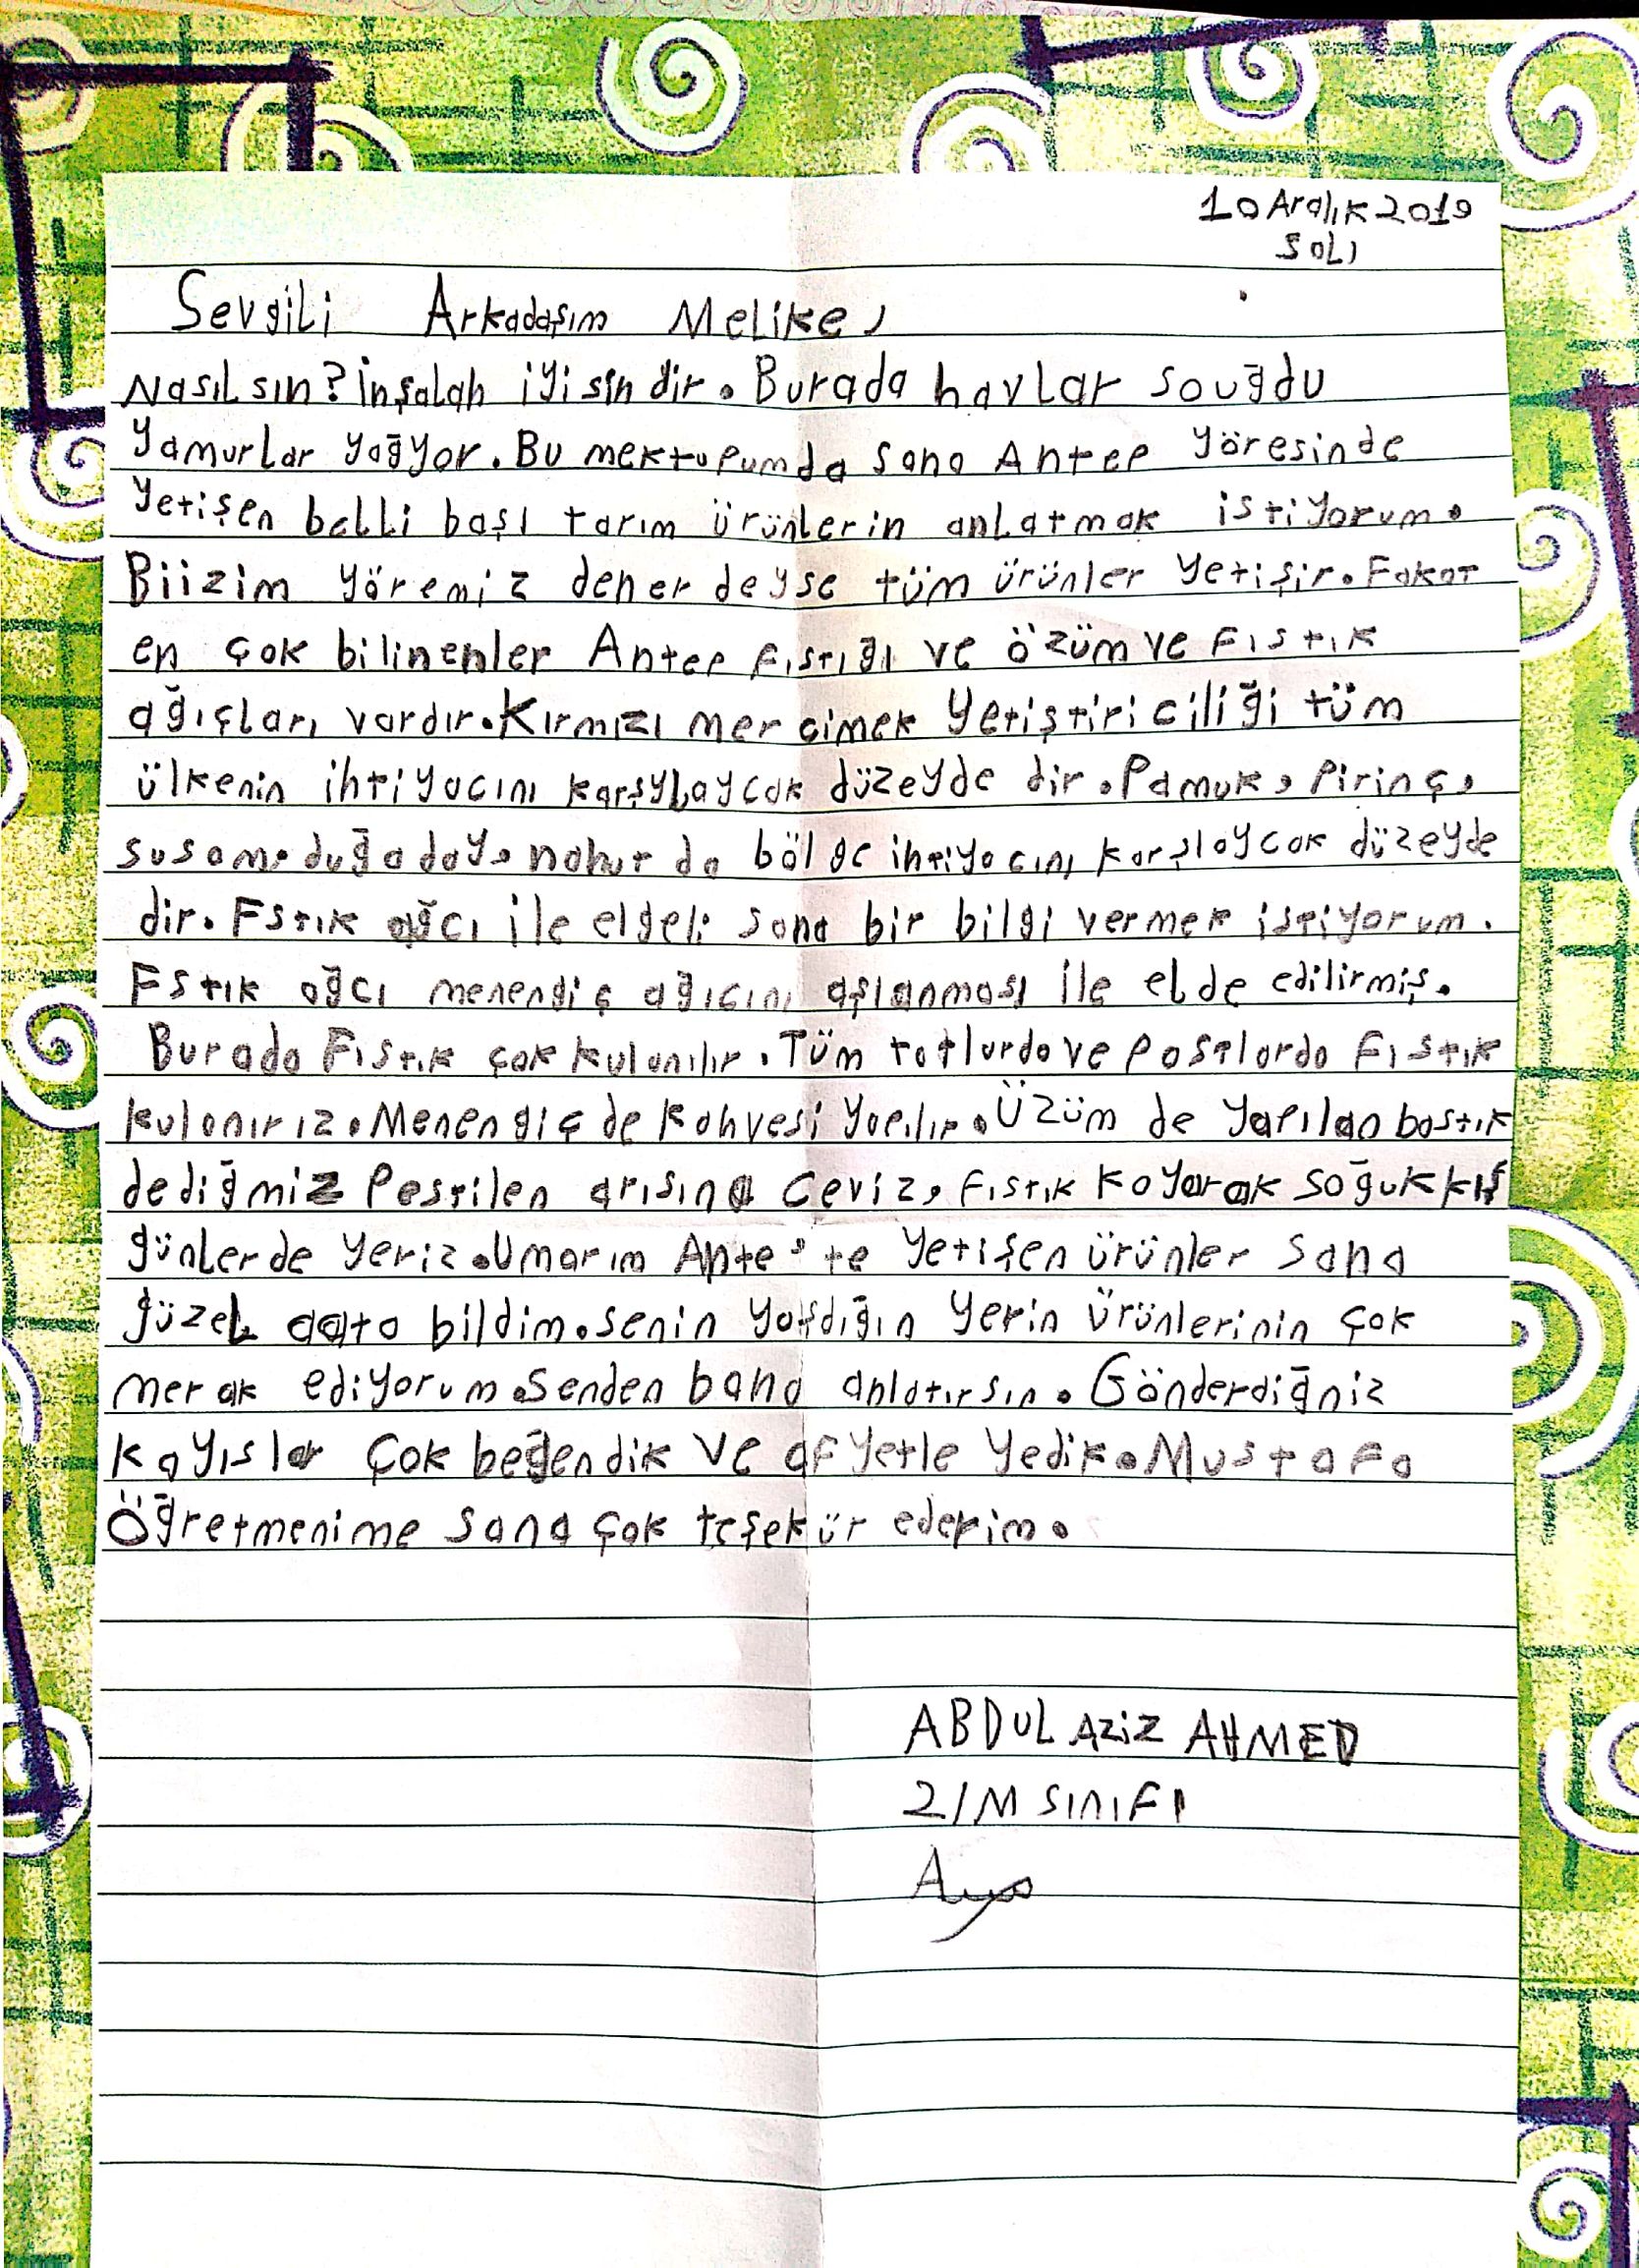 10 Aralık 2019
SOLI
Sevgili Arkadaşım Melike,
Nasıl sın? İnşalah iyi sin dir. Burada havlar souğdu
Yamurlar yağyor. Bu mektupumda sana Antep Yöresinde
Yetişen belli başı tarım ürünlerin anlatmak istiyorum.
Biizim yöremiz dener deyse tüm ürünler yetişir. Fakat
en çok bilinenler Antep fıstığı ve özüm ve Fıstık
ağıçları vardır. Kırmızı mer cimek yetiştiri ciliği tüm
ülkenin ihtiyacını karşylaycak düzeyde dir. Pamuk, Pirinç,
susam, duğaday, nohut da bölge ihtiyacını karşlaycak düzeyde
dir. Fstık ağcı ile elgeli sana bir bilgi vermek istiyorum.
Fstık ağcı menengiç ağıcını aşlanması ile elde edilirmiş.
Burada Fıstık çok kulanılır. Tüm tatlurda ve pastlarda Fıstık
kulanırız. Menengiç de kahvesi yapılır. Üzüm de yapılan bastık
dediğmiz Pestilen arısına ceviz, fıstık koyarak soğuk kış
günlerde yeriz. Umarım Ante'te yetişen ürünler sana
güzel aata bildim. senin yaşdığın yerin ürünlerinin çok
merak ediyorum. Senden bana anlatırsın. Gönderdiğniz
kayıslar çok beğendik ve afyetle yedik. Mustafa
Öğretmenime sana çok teşekür ederim.
ABDUL AZİZ AHMED
2/M SINIFI